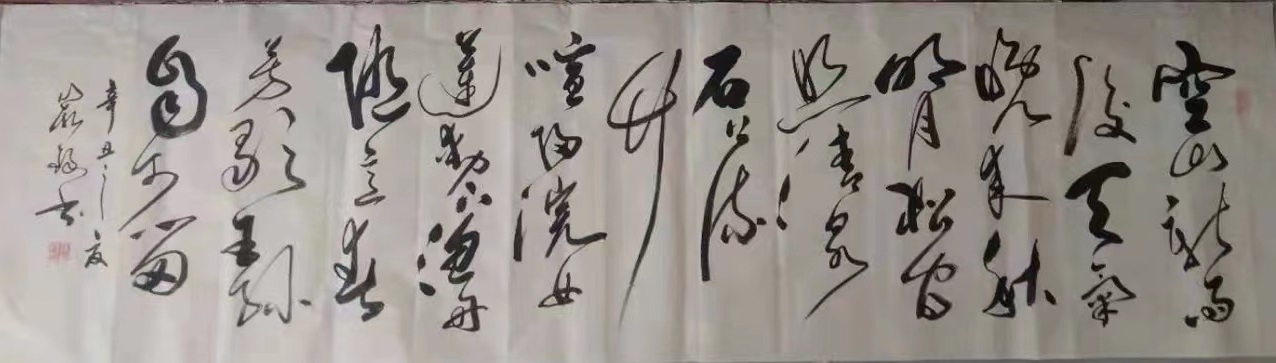 空山新雨
後天氣
晚来秋
明月松间
照清泉
石上流
竹
喧归浣女
莲动下渔舟
随意春
芳歇王孙
自可留
辛丑之夏
书